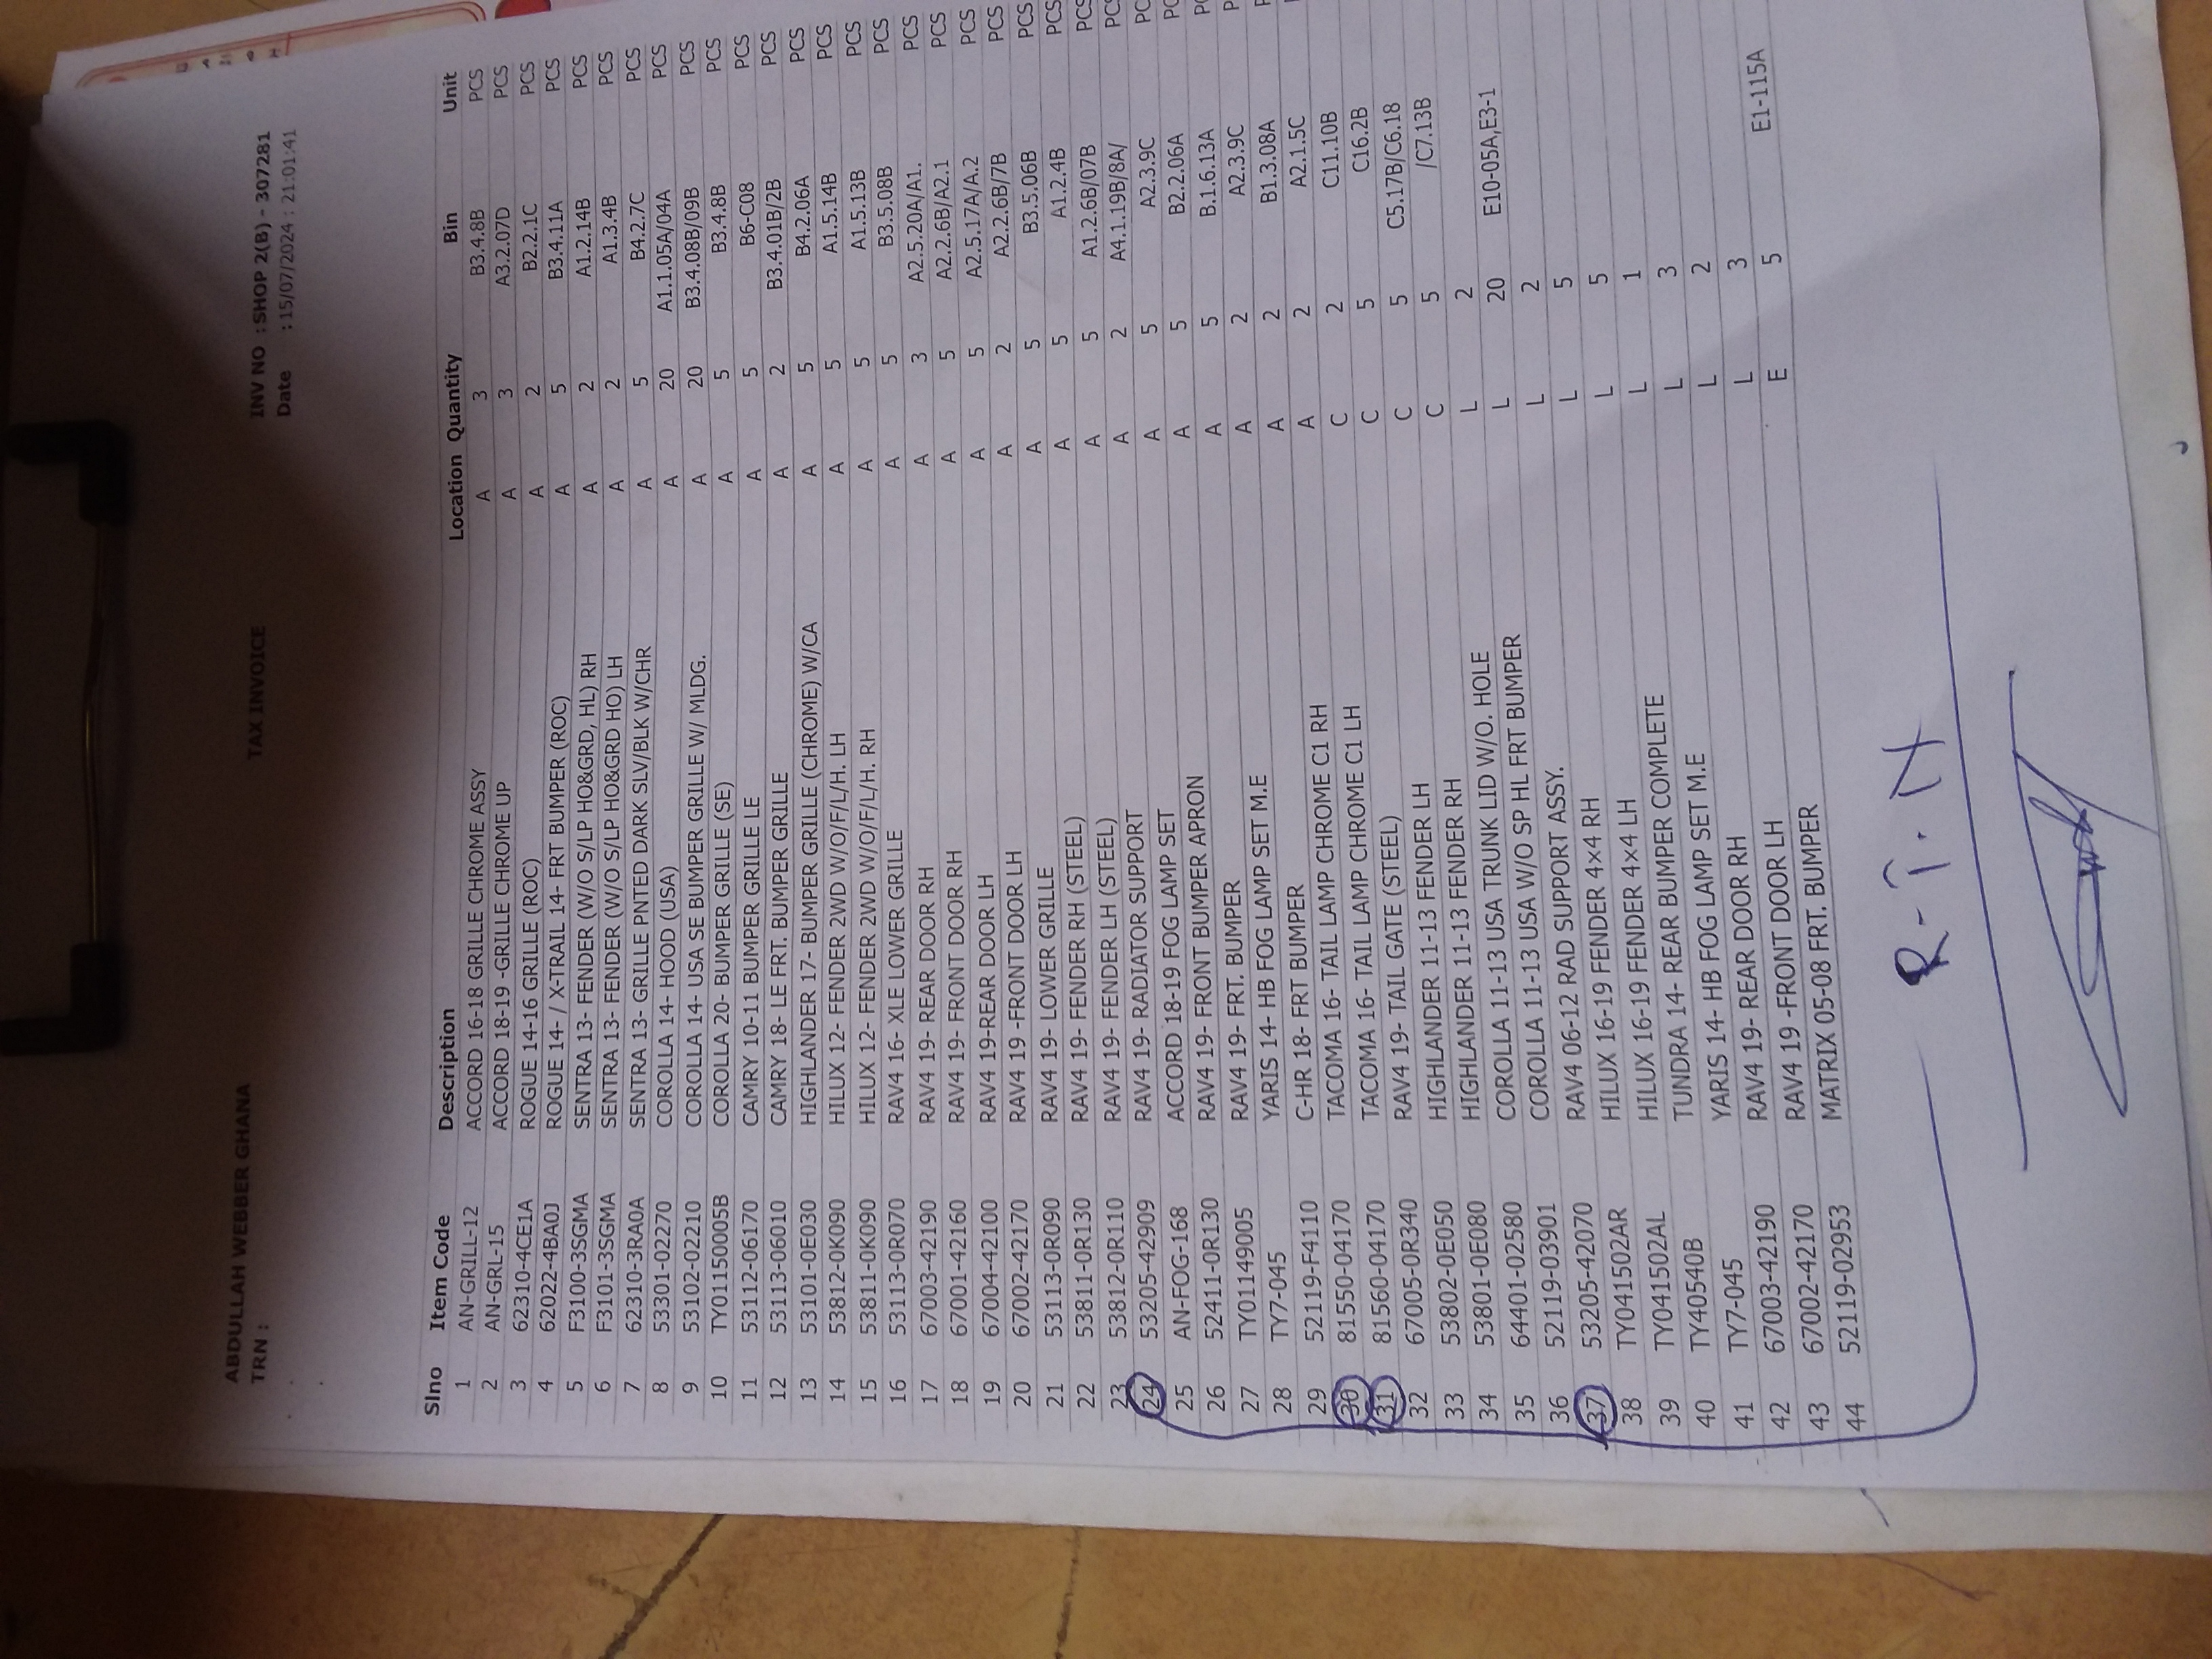 ABDULLAH WEBBER GHANA TAX INVOICE INV NO : SHOP 2(B) - 307281
TRN : Date : 15/07/2024 : 21:01:41
Slno Item Code Description Location Quantity Bin Unit
1 AN-GRILL-12 ACCORD 16-18 GRILLE CHROME ASSY A 3 B3.4.8B PCS
2 AN-GRL-15 ACCORD 18-19 -GRILLE CHROME UP A 3 A3.2.07D PCS
3 62310-4CE1A ROGUE 14-16 GRILLE (ROC) A 2 B2.2.1C PCS
4 62022-4BA0J ROGUE 14- / X-TRAIL 14- FRT BUMPER (ROC) A 5 B3.4.11A PCS
5 F3100-3SGMA SENTRA 13- FENDER (W/O S/LP HO&GRD, HL) RH A 2 A1.2.14B PCS
6 F3101-3SGMA SENTRA 13- FENDER (W/O S/LP HO&GRD HO) LH A 2 A1.3.4B PCS
7 62310-3RA0A SENTRA 13- GRILLE PNTED DARK SLV/BLK W/CHR A 5 B4.2.7C PCS
8 53301-02270 COROLLA 14- HOOD (USA) A 20 A1.1.05A/04A PCS
9 53102-02210 COROLLA 14- USA SE BUMPER GRILLE W/ MLDG. A 20 B3.4.08B/09B PCS
10 TY01150005B COROLLA 20- BUMPER GRILLE (SE) A 5 B3.4.8B PCS
11 53112-06170 CAMRY 10-11 BUMPER GRILLE LE A 5 B6-C08 PCS
12 53113-06010 CAMRY 18- LE FRT. BUMPER GRILLE A 2 B3.4.01B/2B PCS
13 53101-0E030 HIGHLANDER 17- BUMPER GRILLE (CHROME) W/CA A 5 B4.2.06A PCS
14 53812-0K090 HILUX 12- FENDER 2WD W/O/F/L/H. LH A 5 A1.5.14B PCS
15 53811-0K090 HILUX 12- FENDER 2WD W/O/F/L/H. RH A 5 A1.5.13B PCS
16 53113-0R070 RAV4 16- XLE LOWER GRILLE A 5 B3.5.08B PCS
17 67003-42190 RAV4 19- REAR DOOR RH A 3 A2.5.20A/A1. PCS
18 67001-42160 RAV4 19- FRONT DOOR RH A 5 A2.2.6B/A2.1 PCS
19 67004-42100 RAV4 19-REAR DOOR LH A 5 A2.5.17A/A.2 PCS
20 67002-42170 RAV4 19 -FRONT DOOR LH A 2 A2.2.6B/7B PCS
21 53113-0R090 RAV4 19- LOWER GRILLE A 5 B3.5.06B PCS
22 53811-0R130 RAV4 19- FENDER RH (STEEL) A 5 A1.2.4B PCS
23 53812-0R110 RAV4 19- FENDER LH (STEEL) A 5 A1.2.6B/07B PCS
24 53205-42909 RAV4 19- RADIATOR SUPPORT A 2 A4.1.19B/8A/
25 AN-FOG-168 ACCORD 18-19 FOG LAMP SET A 5 A2.3.9C
26 52411-0R130 RAV4 19- FRONT BUMPER APRON A 5 B2.2.06A
27 TY01149005 RAV4 19- FRT. BUMPER A 5 B.1.6.13A
28 TY7-045 YARIS 14- HB FOG LAMP SET M.E A 2 A2.3.9C
29 52119-F4110 C-HR 18- FRT BUMPER A 2 B1.3.08A
30 81550-04170 TACOMA 16- TAIL LAMP CHROME C1 RH A 2 A2.1.5C
31 81560-04170 TACOMA 16- TAIL LAMP CHROME C1 LH C 2 C11.10B
32 67005-0R340 RAV4 19- TAIL GATE (STEEL) C 5 C16.2B
33 53802-0E050 HIGHLANDER 11-13 FENDER LH C 5 C5.17B/C6.18
34 53801-0E080 HIGHLANDER 11-13 FENDER RH C 5 /C7.13B
35 64401-02580 COROLLA 11-13 USA TRUNK LID W/O. HOLE L 2
36 52119-03901 COROLLA 11-13 USA W/O SP HL FRT BUMPER L 20 E10-05A,E3-1
37 53205-42070 RAV4 06-12 RAD SUPPORT ASSY. L 2
38 TY041502AR HILUX 16-19 FENDER 4×4 RH L 5
39 TY041502AL HILUX 16-19 FENDER 4×4 LH L 5
40 TY40540B TUNDRA 14- REAR BUMPER COMPLETE L 1
41 TY7-045 YARIS 14- HB FOG LAMP SET M.E L 3
42 67003-42190 RAV4 19- REAR DOOR RH L 2
43 67002-42170 RAV4 19 -FRONT DOOR LH L 3
44 52119-02953 MATRIX 05-08 FRT. BUMPER E 5 E1-115A